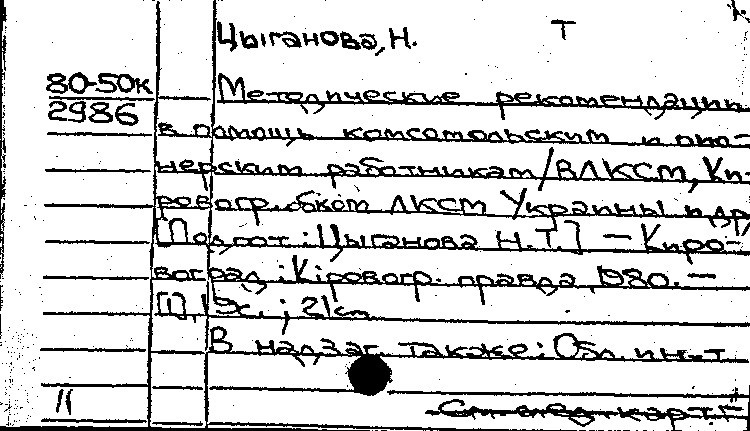 Цыганова, Н. Т
80-50к
2986
Методические рекомендации
в помощь комсомольским и пио-
нерским работникам/ВЛКСМ, Ки-
ровогр. обком ЛКСМ Украины и др,
[Подгот.: Цыганова Н.Т.] — Киро-
воград: Кiровогр. правда, 1980. —
[1], 19с.; 21см
В надзаг. также: Обл. ин-т
11